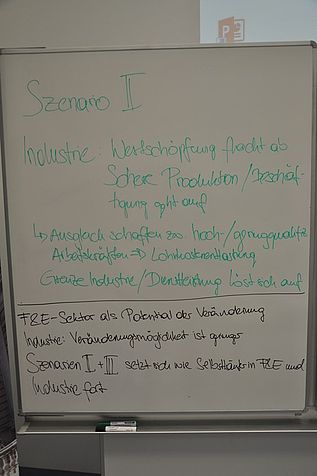 Szenario II
Industrie: Wertschöpfung flacht ab
Schere Produktion/Beschäf-
tigung geht auf
↳ Ausgleich schaffen zw. hoch-/geringqualifiz
Arbeitskräften ⇒ Lohnkostenentlastung
Grenze Industrie/Dienstleistung löst sich auf
F&E-Sektor als Potential der Veränderung
Industrie: Veränderungsmöglichkeit ist gering
Szenarien I + III setzt sich wie in F&E und
Industrie fort